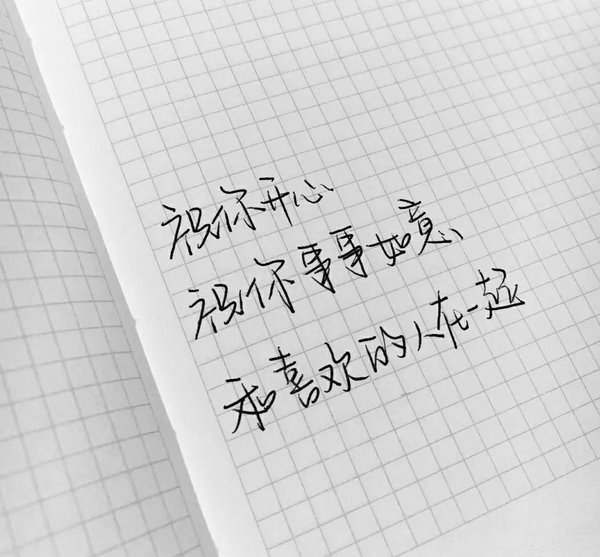 祝你开心
祝你事事如意
和喜欢的人在一起